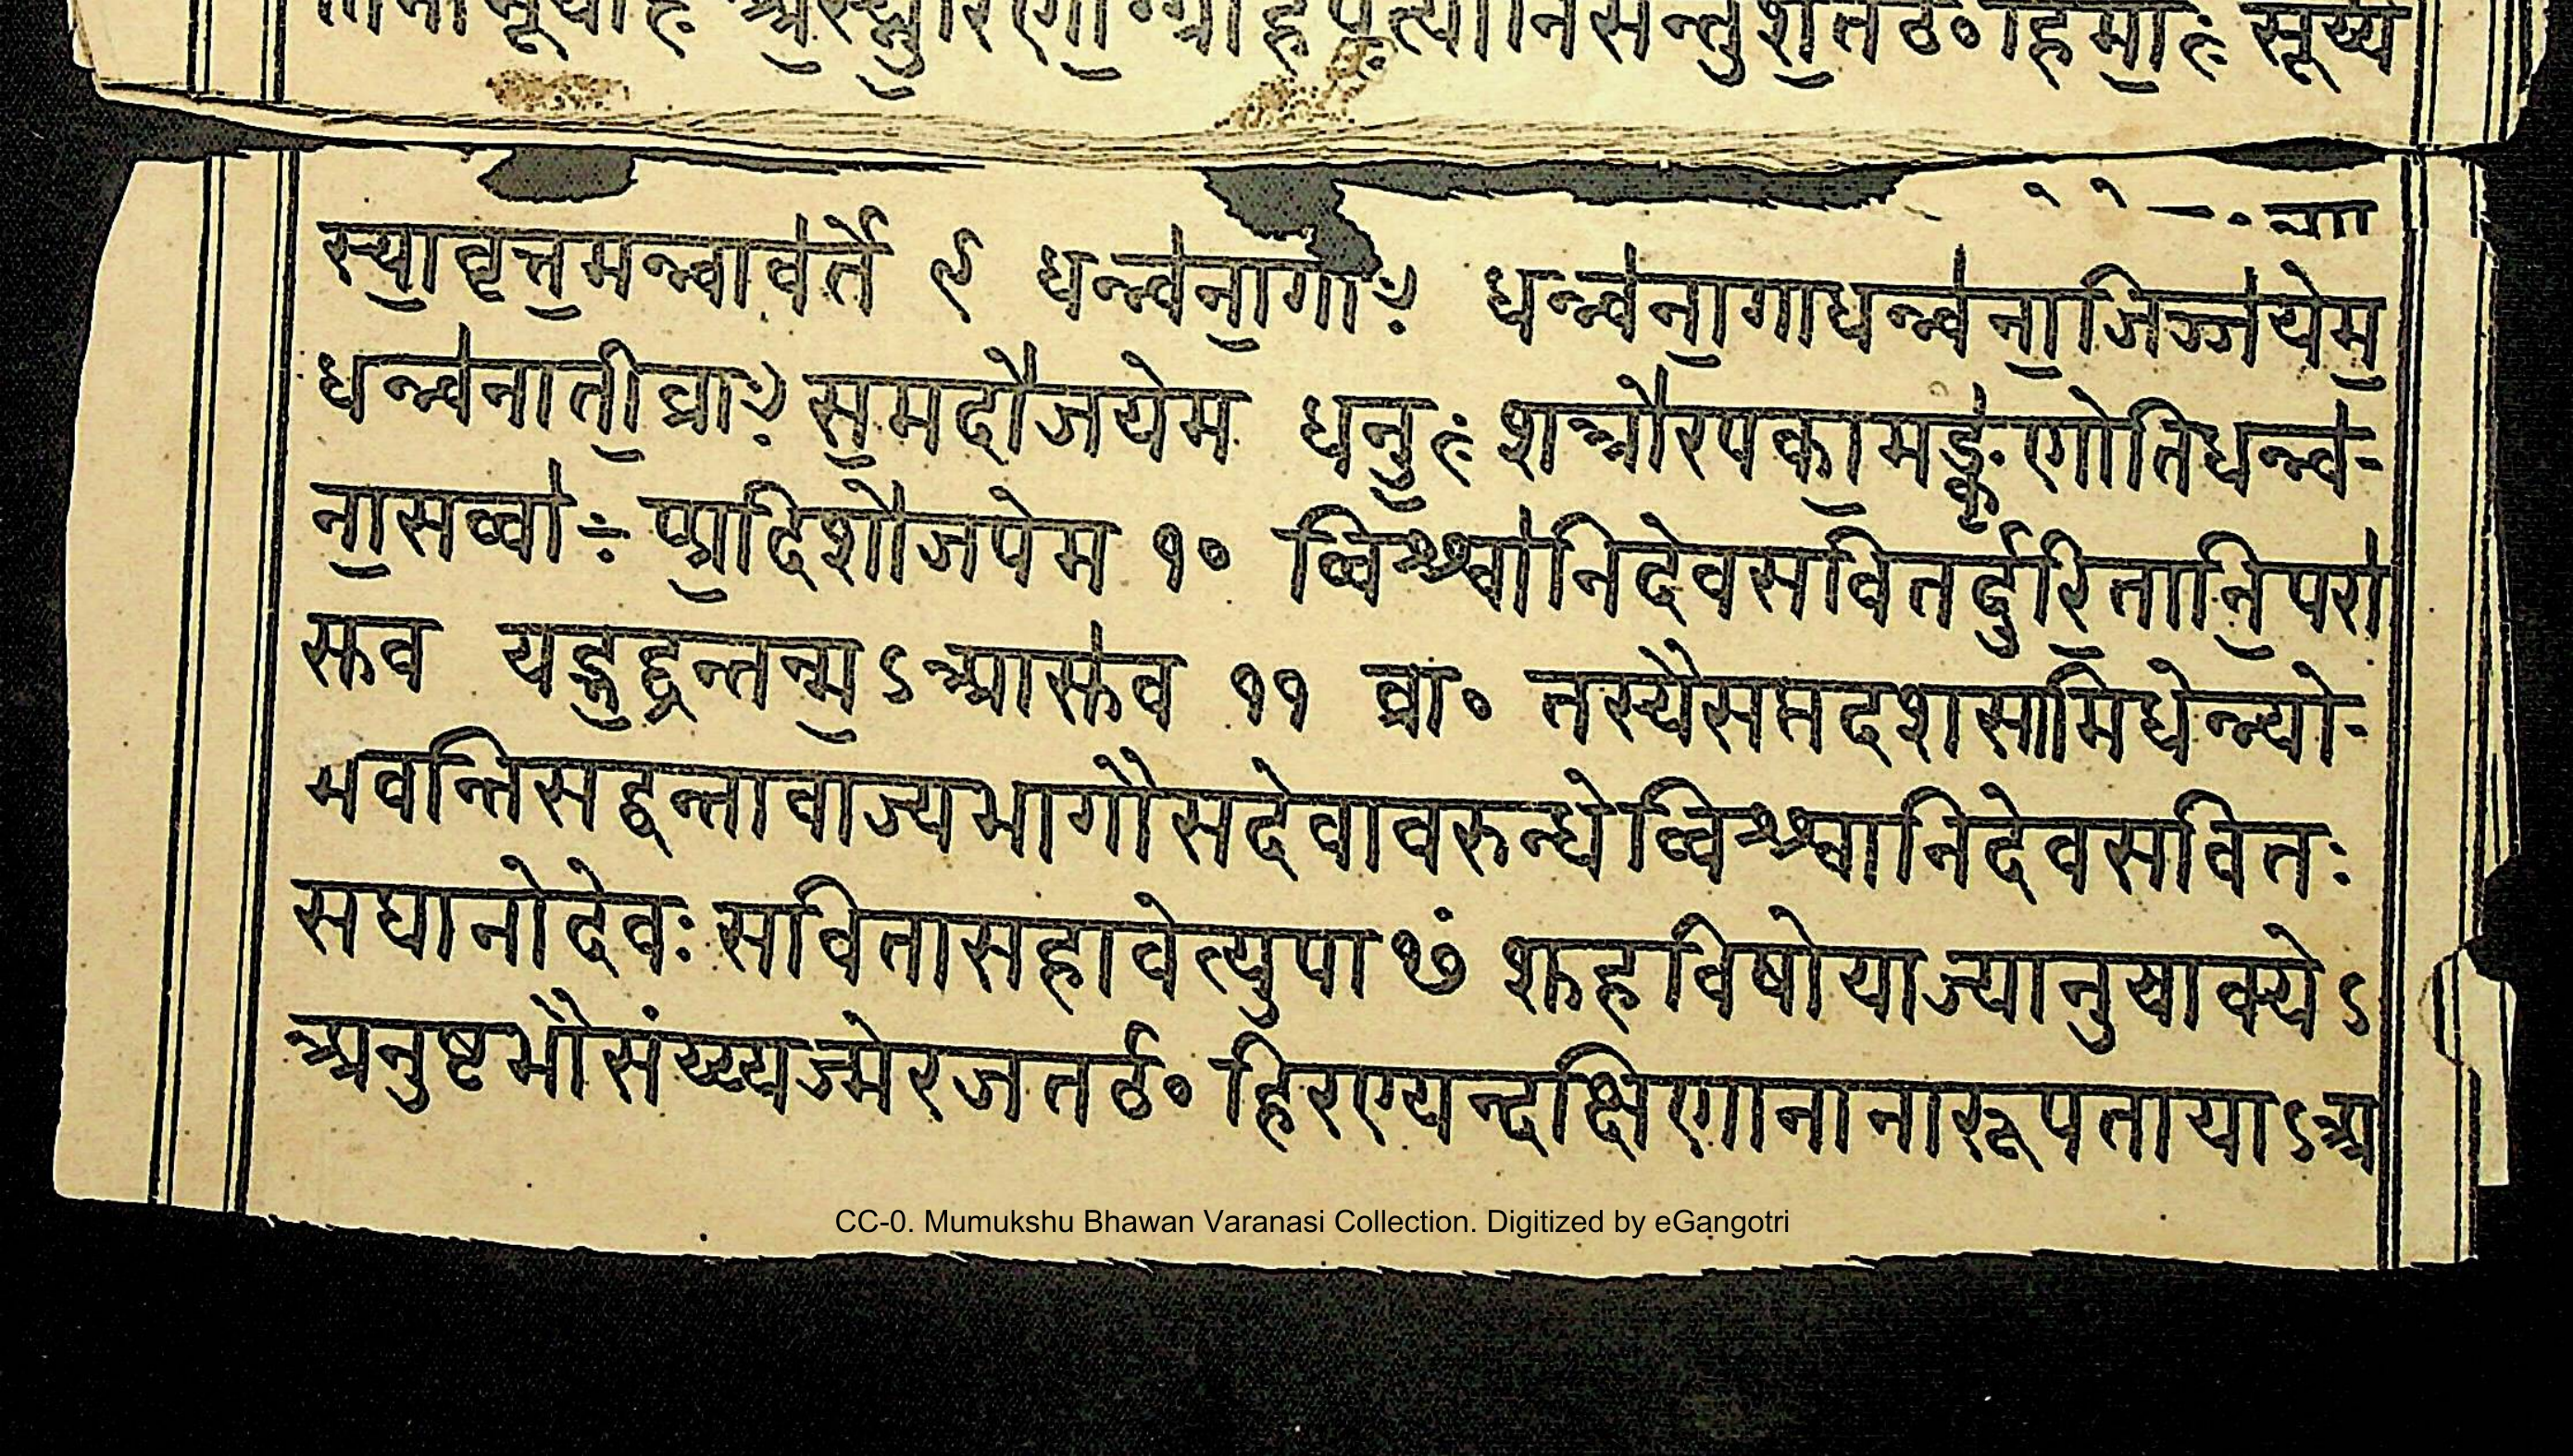 सूर्य्य
स्यावृत्तमन्वावर्ते ९ धन्न्वनागाः धन्न्वनागाधन्न्वनाजिञ्जयेम
धन्न्वनातीव्राः समदोजयेम धनुः शत्त्रोरपकामङ्कृणोतिधन्न्व-
नासर्व्वाः प्प्रदिशोजयेम १० व्विश्श्वानिदेवसवितर्दुरितानिपरा
सुव यद्भद्रन्तन्मऽआसुव ११ ब्रा० तस्यैसप्तदशसामिधेन्न्यो-
भवन्तिसद्वन्तावाज्यभागौसदेवावरुन्धेव्विश्श्वानिदेवसवितः
सघानोदेवः सवितासहावेत्युपाᳪ शुहविषोयाज्यानुवाक्येऽ
अनुष्टभौसंय्याज्येरजतᳪ हिरण्यन्दक्षिणानानारूपतायाऽअ
CC-0. Mumukshu Bhawan Varanasi Collection. Digitized by eGangotri